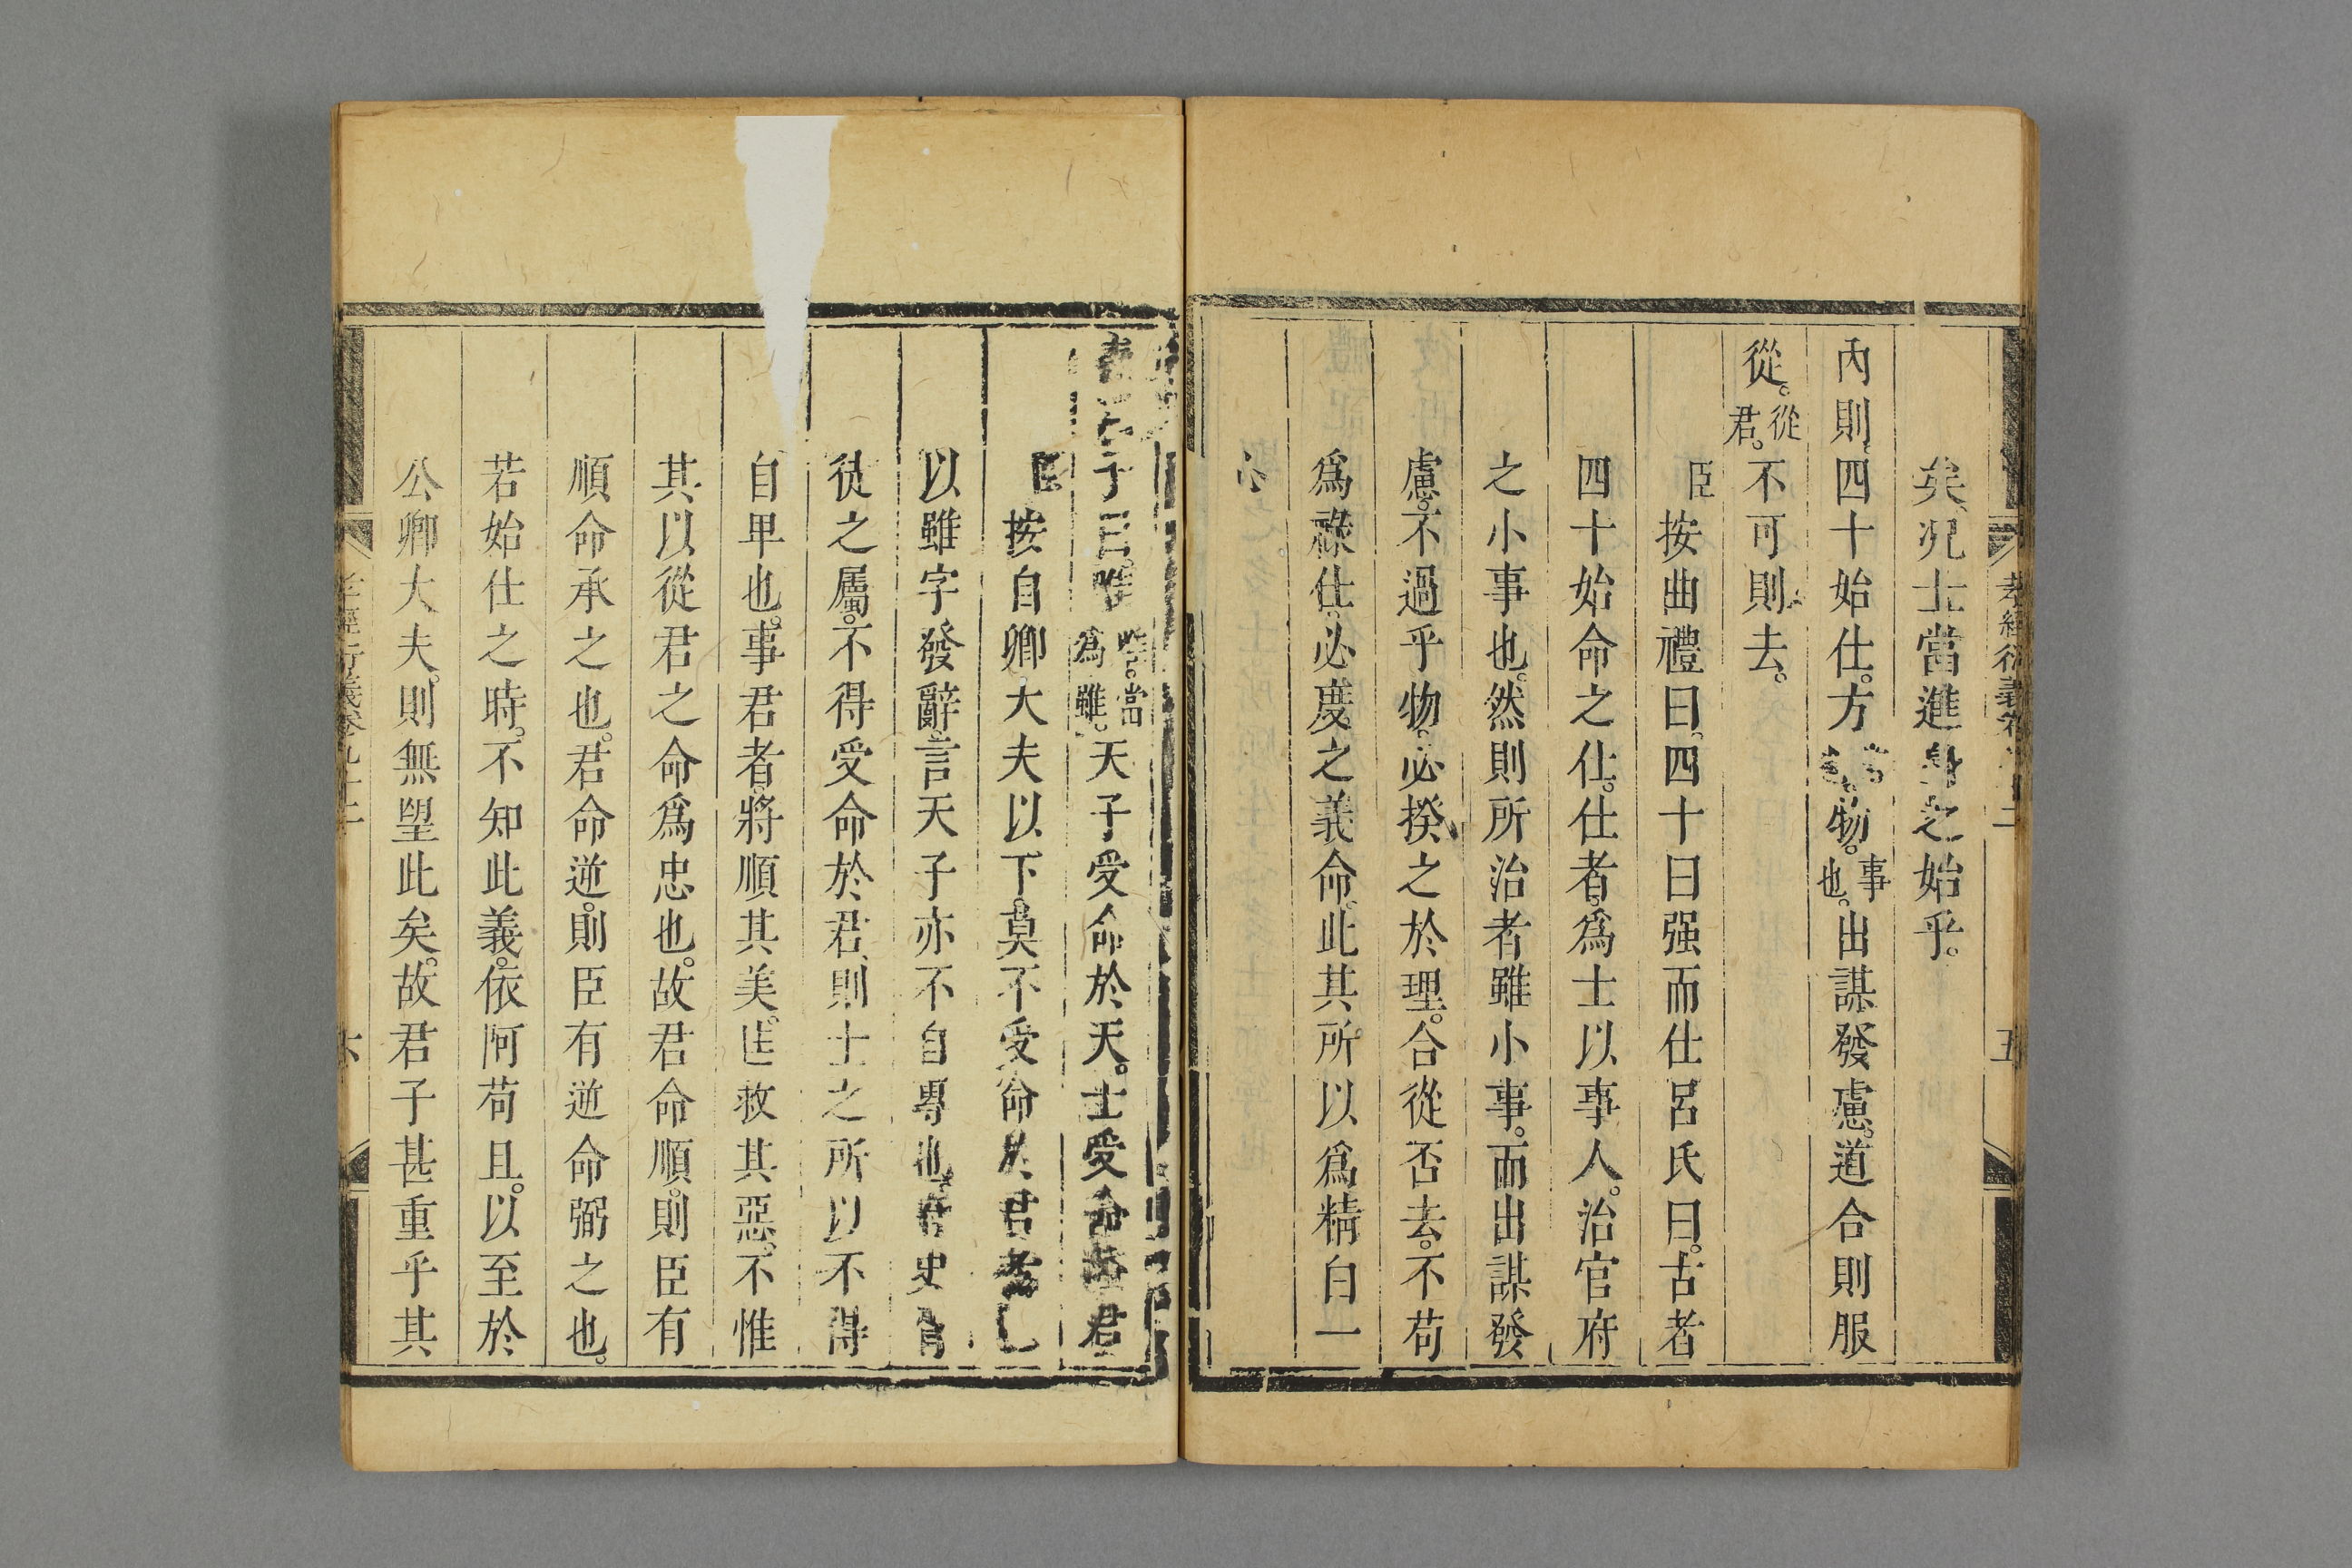 矣況士當進身之始乎。
內則四十始仕。方物。事也。出謀發慮。道合則服
從。從君。不可則去。
臣按曲禮曰。四十曰强而仕呂氏曰。古者
四十始命之仕。仕者。爲士以事人。治官府
之小事也。然則所治者雖小事。而出謀發
慮。不過乎物。必揆之於理。合從否去。不苟
爲祿仕。必度之義命。此其所以爲精白一
心
孝經衍義卷 二 五
子曰。唯 唯。當爲雖。天子受命於天。士受命 君
臣按自卿。大夫以下。莫不受命於君者
以雖字發辭。言天子亦不自專也。 史胥
徒之屬。不得受命於君則士之所以不得
自卑也。事君者。將順其美。匡救其惡。不惟
其以從君之命爲忠也。故君命順。則臣有
順命承之也。君命逆。則臣有逆命弼之也。
若始仕之時。不知此義。依阿苟且。以至於
公卿大夫。則無望此矣。故君子甚重乎其
孝經衍義卷九十二 六